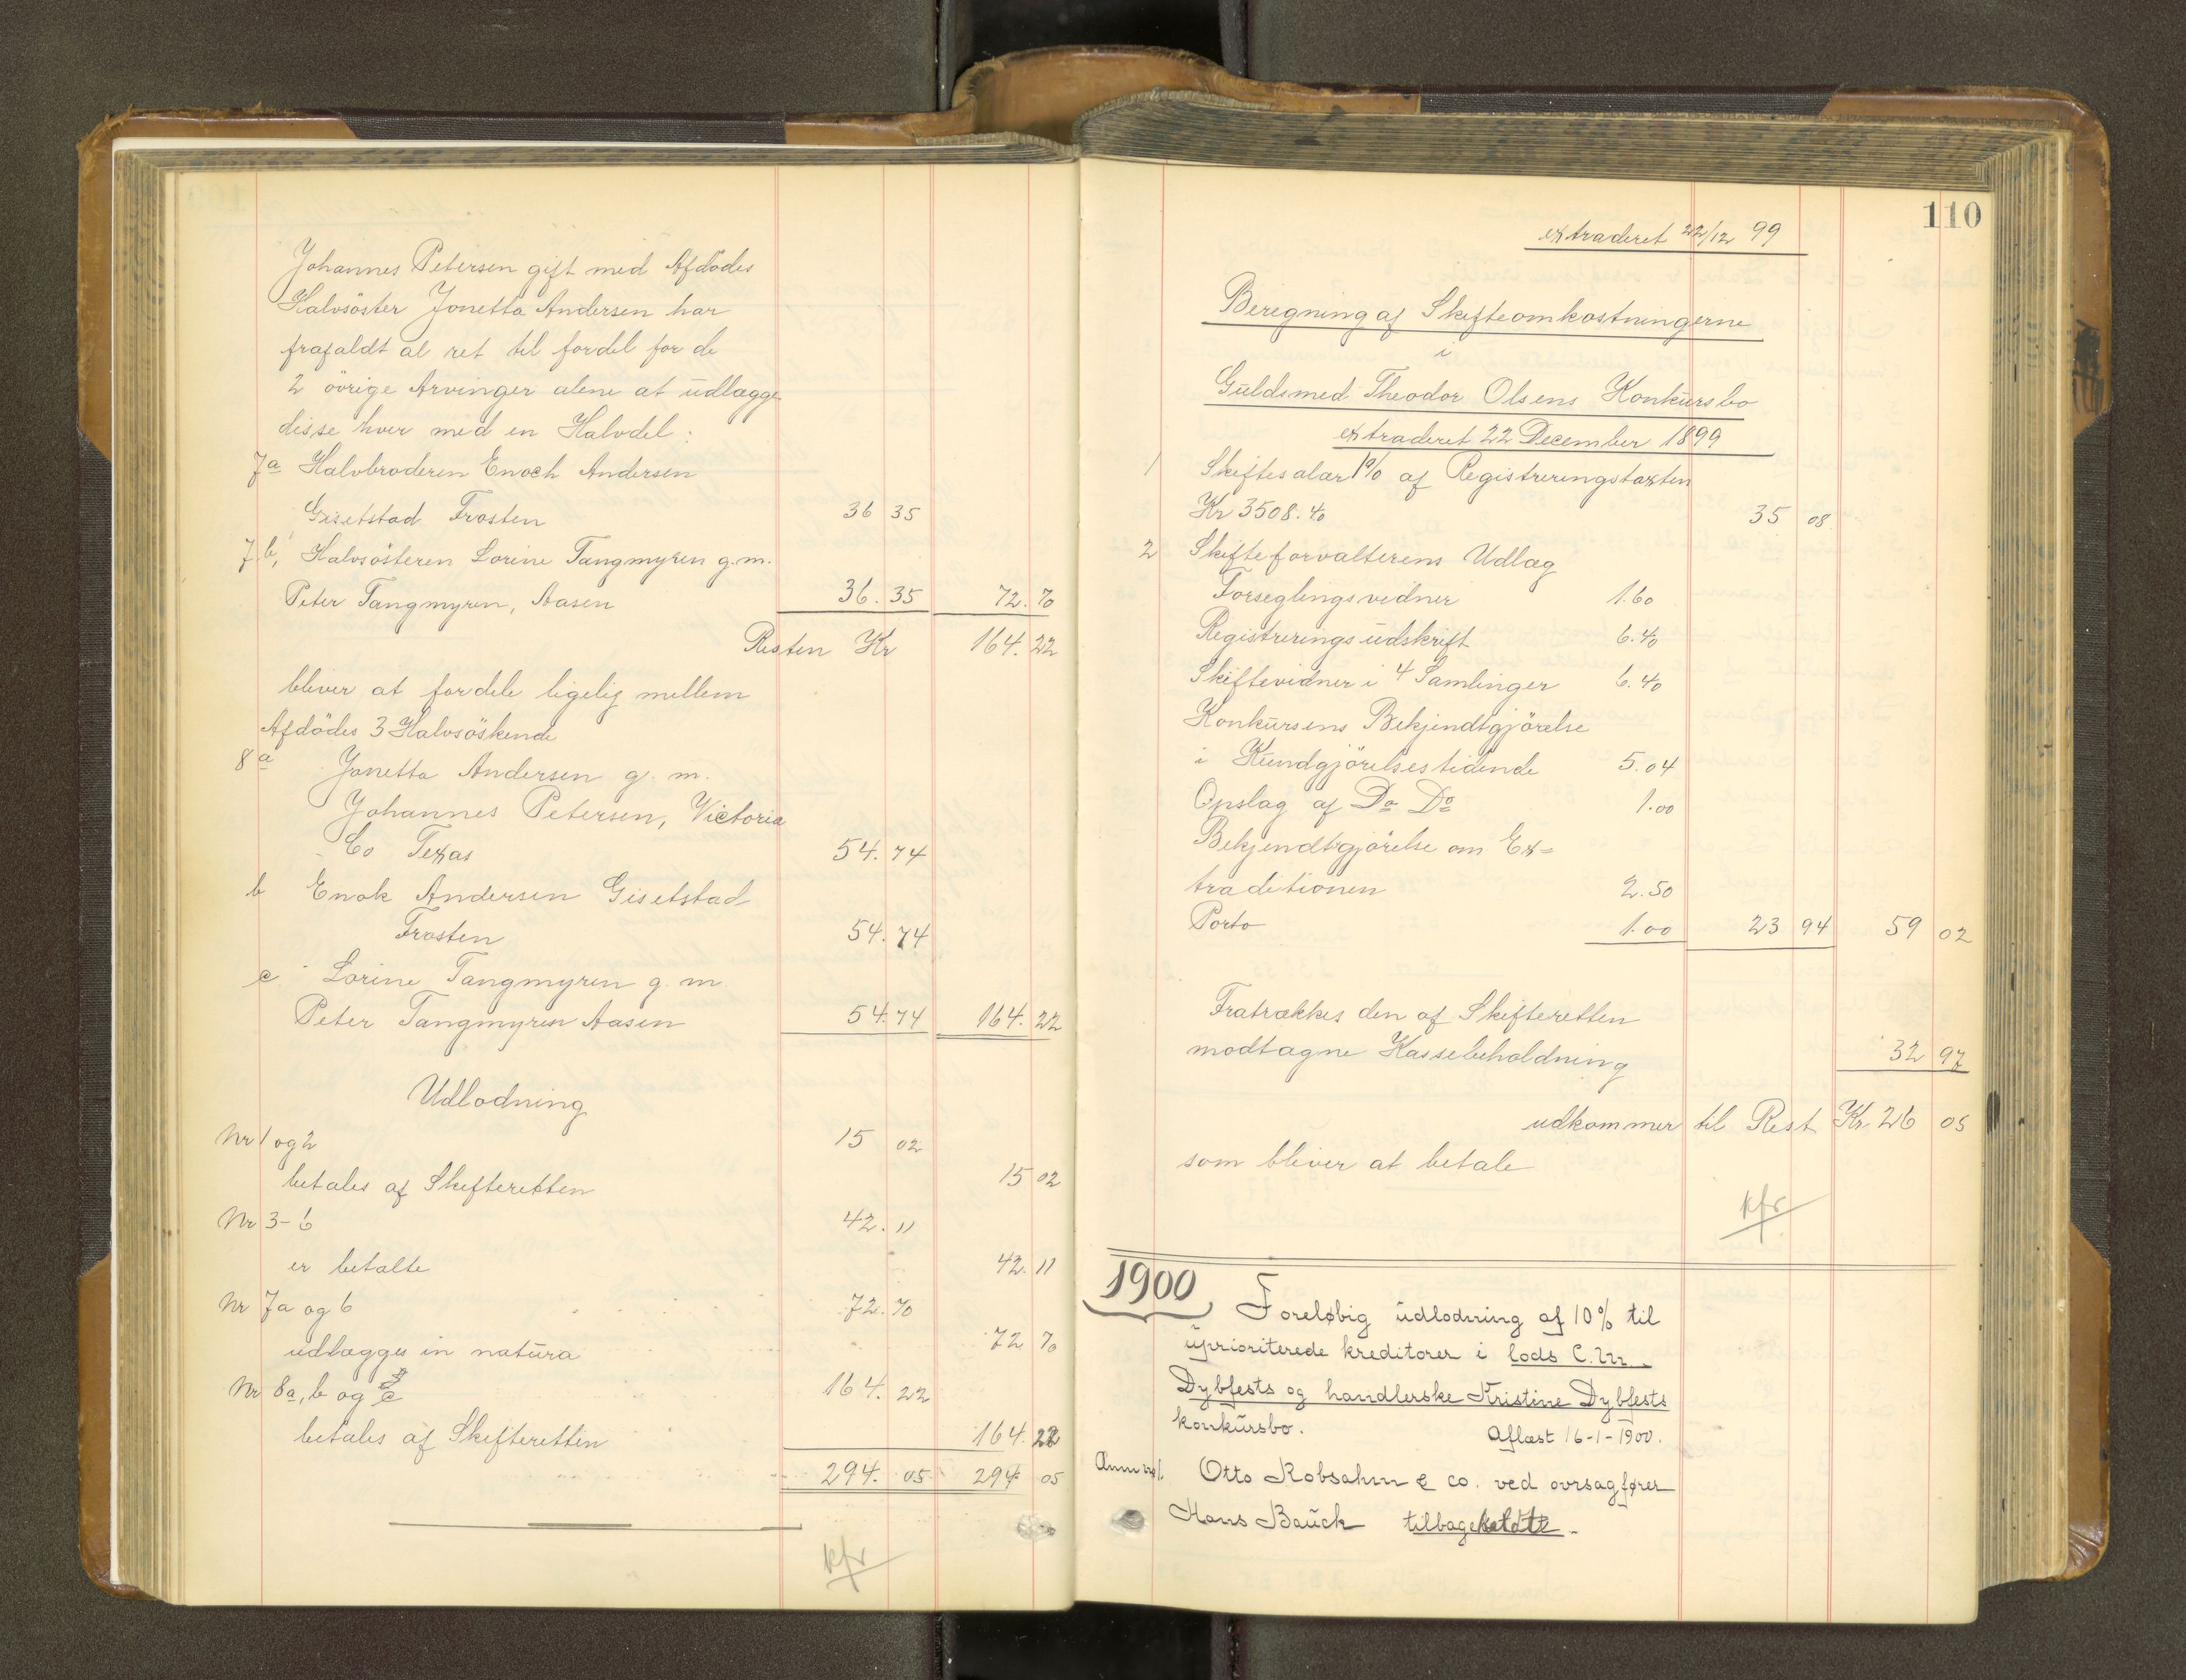 Johannes Petersen gift med Afdödes
Halvsöster Jonetta Andersen har
frafaldt al ret til fordel for de
2 övrige Arvinger alene at udlægge
disse hver med en Halvdel:
7a Halvbroderen Enoch Andersen
Gisetstad Frosten 36 35
7b, Halvsösteren Lorine Tangmyren g.m.
Peter Tangmyren, Aasen 36. 35 72. 70
Resten Kr 164. 22
bliver at fordele ligelig mellem
Afdödes 3 Halvsöskende
8a Jonetta Andersen g. m.
Johannes Petersen, Victoria
Co Texas 54. 74
b Enok Andersen Gisetstad
Frosten 54. 74
c Lorine Tangmyren g. m
Peter Tangmyren Aasen 54. 74 164. 22
Udlodning
Nr 1 og 2 15 02
betales af Skifteretten 15 02
Nr 3-6 42. 11
er betalte 42. 11
Nr 7a og b 72. 70
udlægges in natura 72 70
Nr 8a, b og c 164. 22
betales af Skifteretten 164. 22
294. 05 294 05
kfr
110
extraderet 22/12 99
Beregning af Skifteomkostningerne
i
Guldsmed Theodor Olsens Konkursbo
extraderet 22 December 1899
1 Skiftesalær 1% af Registreringstaxten
Kr 3508.40 35 08
2 Skifteforvalterens Udlæg
Forseglingsvidner 1.60
Registreringsudskrift 6.40
Skiftevidner i 4 Samlinger 6.40
Konkursens Bekjendtgjörelse
i Kundgjörelsestidende 5.04
Opslag af Do Do 1.00
Bekjendtgjörelse om Ex=
traditionen 2.50
Porto 1.00 23 94 59 02
Fratrækkes den af Skifteretten
modtagne Kassebeholdning 32 97
udkommer til Rest Kr. 26 05
som bliver at betale
kfr
1900
Foreløbig udlodning af 10% til
uprioriterede kreditorer i lods C. M.
Dybfests og handlerske Kristine Dybfests
konkursbo. Aflæst 16-1-1900.
Otto Robsahm & co. ved ovrsagfører
Hans Bauck tilbagekaldte.